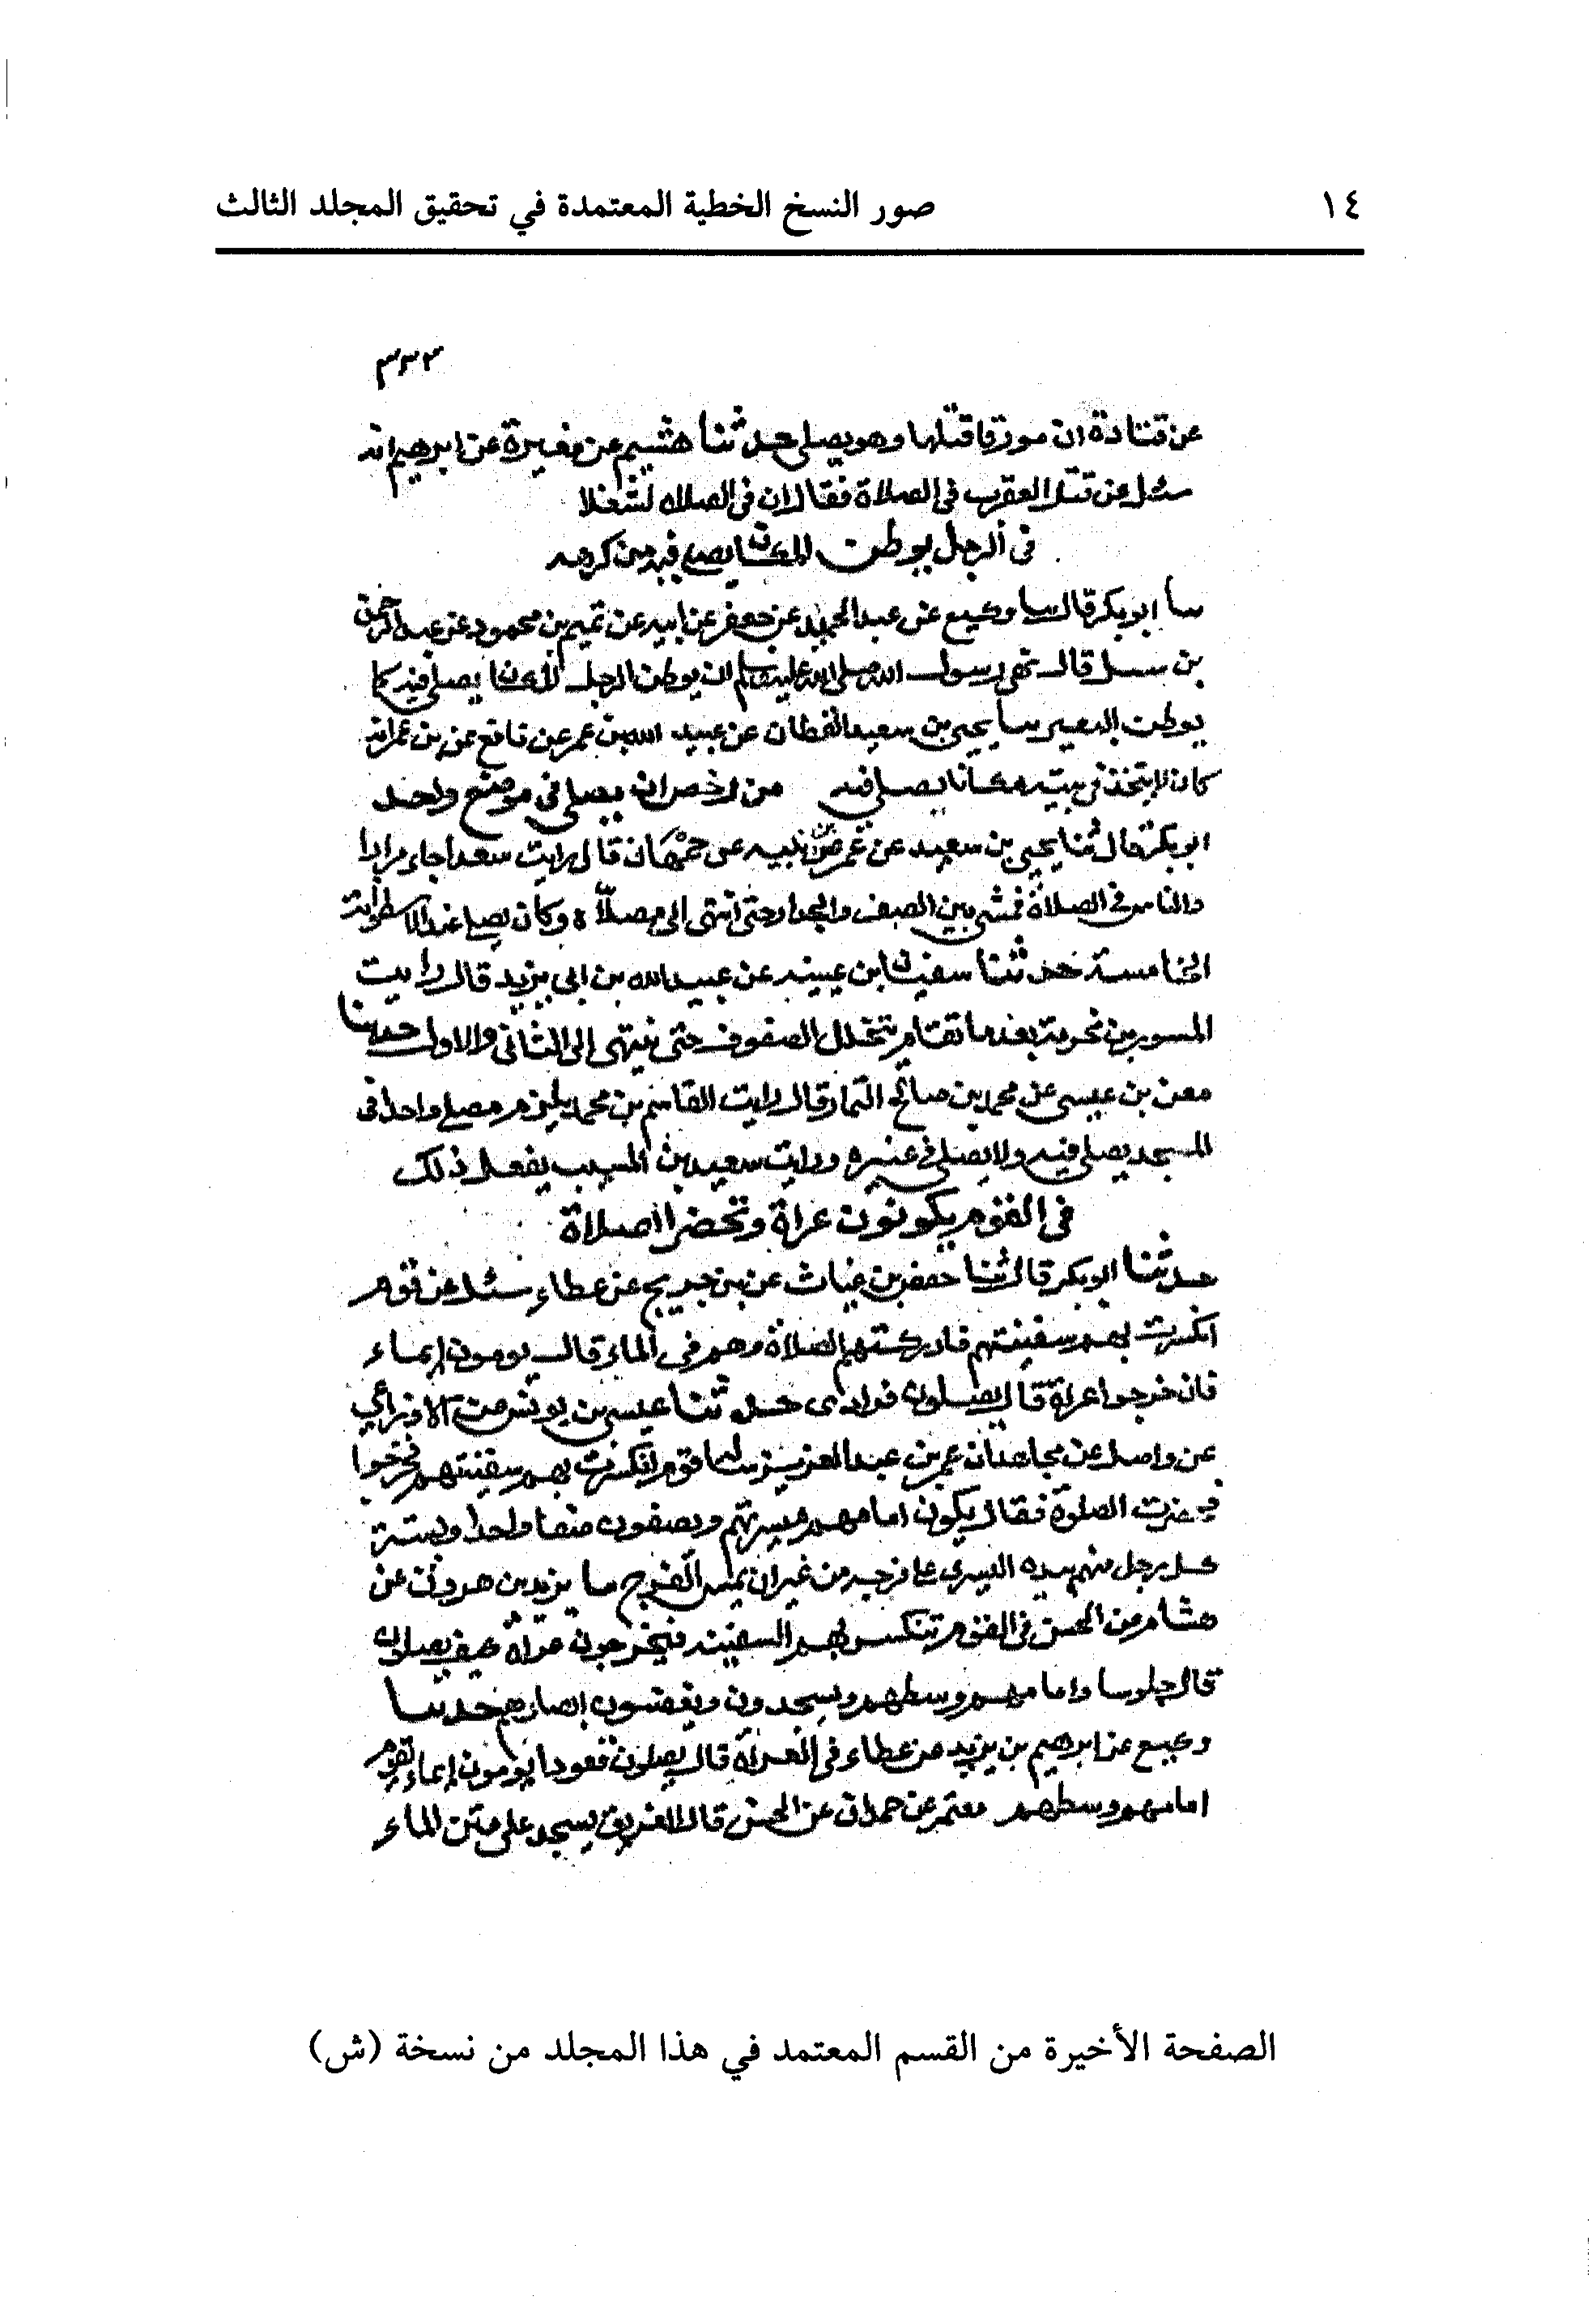 ١٤ صور النسخ الخطية المعتمدة في تحقيق المجلد الثالث
٣٣٣
عن قتادة ان مورقا قتلها وهو يصلي حدثنا هشيم عن مغيرة عن ابرهيم انه
سئل عن قتل العقرب في الصلاة فقال ان في الصلاه لشغلا
في الرجل يوطن المكان يصلي فيه من كرهه
سا ابو بكر قال سا وكيع عن عبد الحميد بن جعفر عن ابيه عن تميم بن محمود عن عبد الرحمن
بن سبل قال نهى رسول الله صلى الله عليه وسلم ان يوطن الرجل المكان يصلي فيه كما
يوطن البعير سا يحيى بن سعيد القطان عن عبيد الله بن عمر عن نافع عن بن عمر انه
كان لا يتخذ في بيته مكانا يصلي فيه من رخص ان يصلي في موضع واحد
ابو بكر قال ثنا يحيى بن سعيد عن عن ابيه عن قال رايت سعدا جاء مرارا
والناس في الصلاة فمشى بين الصف والجدار حتى انتهى الى مصلاه وكان يصلي عند الاسطوانة
الخامسة حدثنا سفيان ابن عيينه عن عبيد الله بن ابي يزيد قال رايت
المسور بن مخرمة بعد ما تقام يتخلل الصفوف حتى ينتهي الى الثاني والاول حدثنا
معن بن عيسى عن محمد بن صالح التمار قال رايت القاسم بن محمد يلزم مصلى واحدا في
المسجد يصلي فيه ولا يصلي في غيره ورايت سعيد بن المسيب يفعل ذلك
في القوم يكونون عراة وتحضر الصلاة
حدثنا ابو بكر قال ثنا حفص بن غياث عن بن جريج عن عطاء سئل عن قوم
انكسرت بهم سفينتهم فادركتهم الصلاة وهم في الماء قال يومون إيماء
فان خرجوا عراة قال يصلون فرادى حدثنا عيسى بن يونس عن الاوزاعي
عن واصل عن مجاهد ان عمر بن عبد العزيز قوم انكسرت بهم سفينتهم فخرجوا
فحضرت الصلوة فقال يكون امامهم ميسرتهم ويصفون صفا واحدا ويستتر
كل رجل منهم بيده اليسرى على فرجه من غير ان يمس الفرج سا يزيد بن هرون عن
هشام عن الحسن في القوم تنكسر بهم السفينه فيخرجون عراة كيف يصلون
قال جلوسا وامامهم وسطهم ويسجدون ويغضون ابصارهم حدثنا
وكيع عن ابرهيم بن يزيد عن عطاء في العراة قال يصلون قعودا يومون إيماء يقوم
امامهم وسطهم معتمر عن حمدان عن الحسن قال الغريق يسجد على متن الماء
الصفحة الأخيرة من القسم المعتمد في هذا المجلد من نسخة (ش)